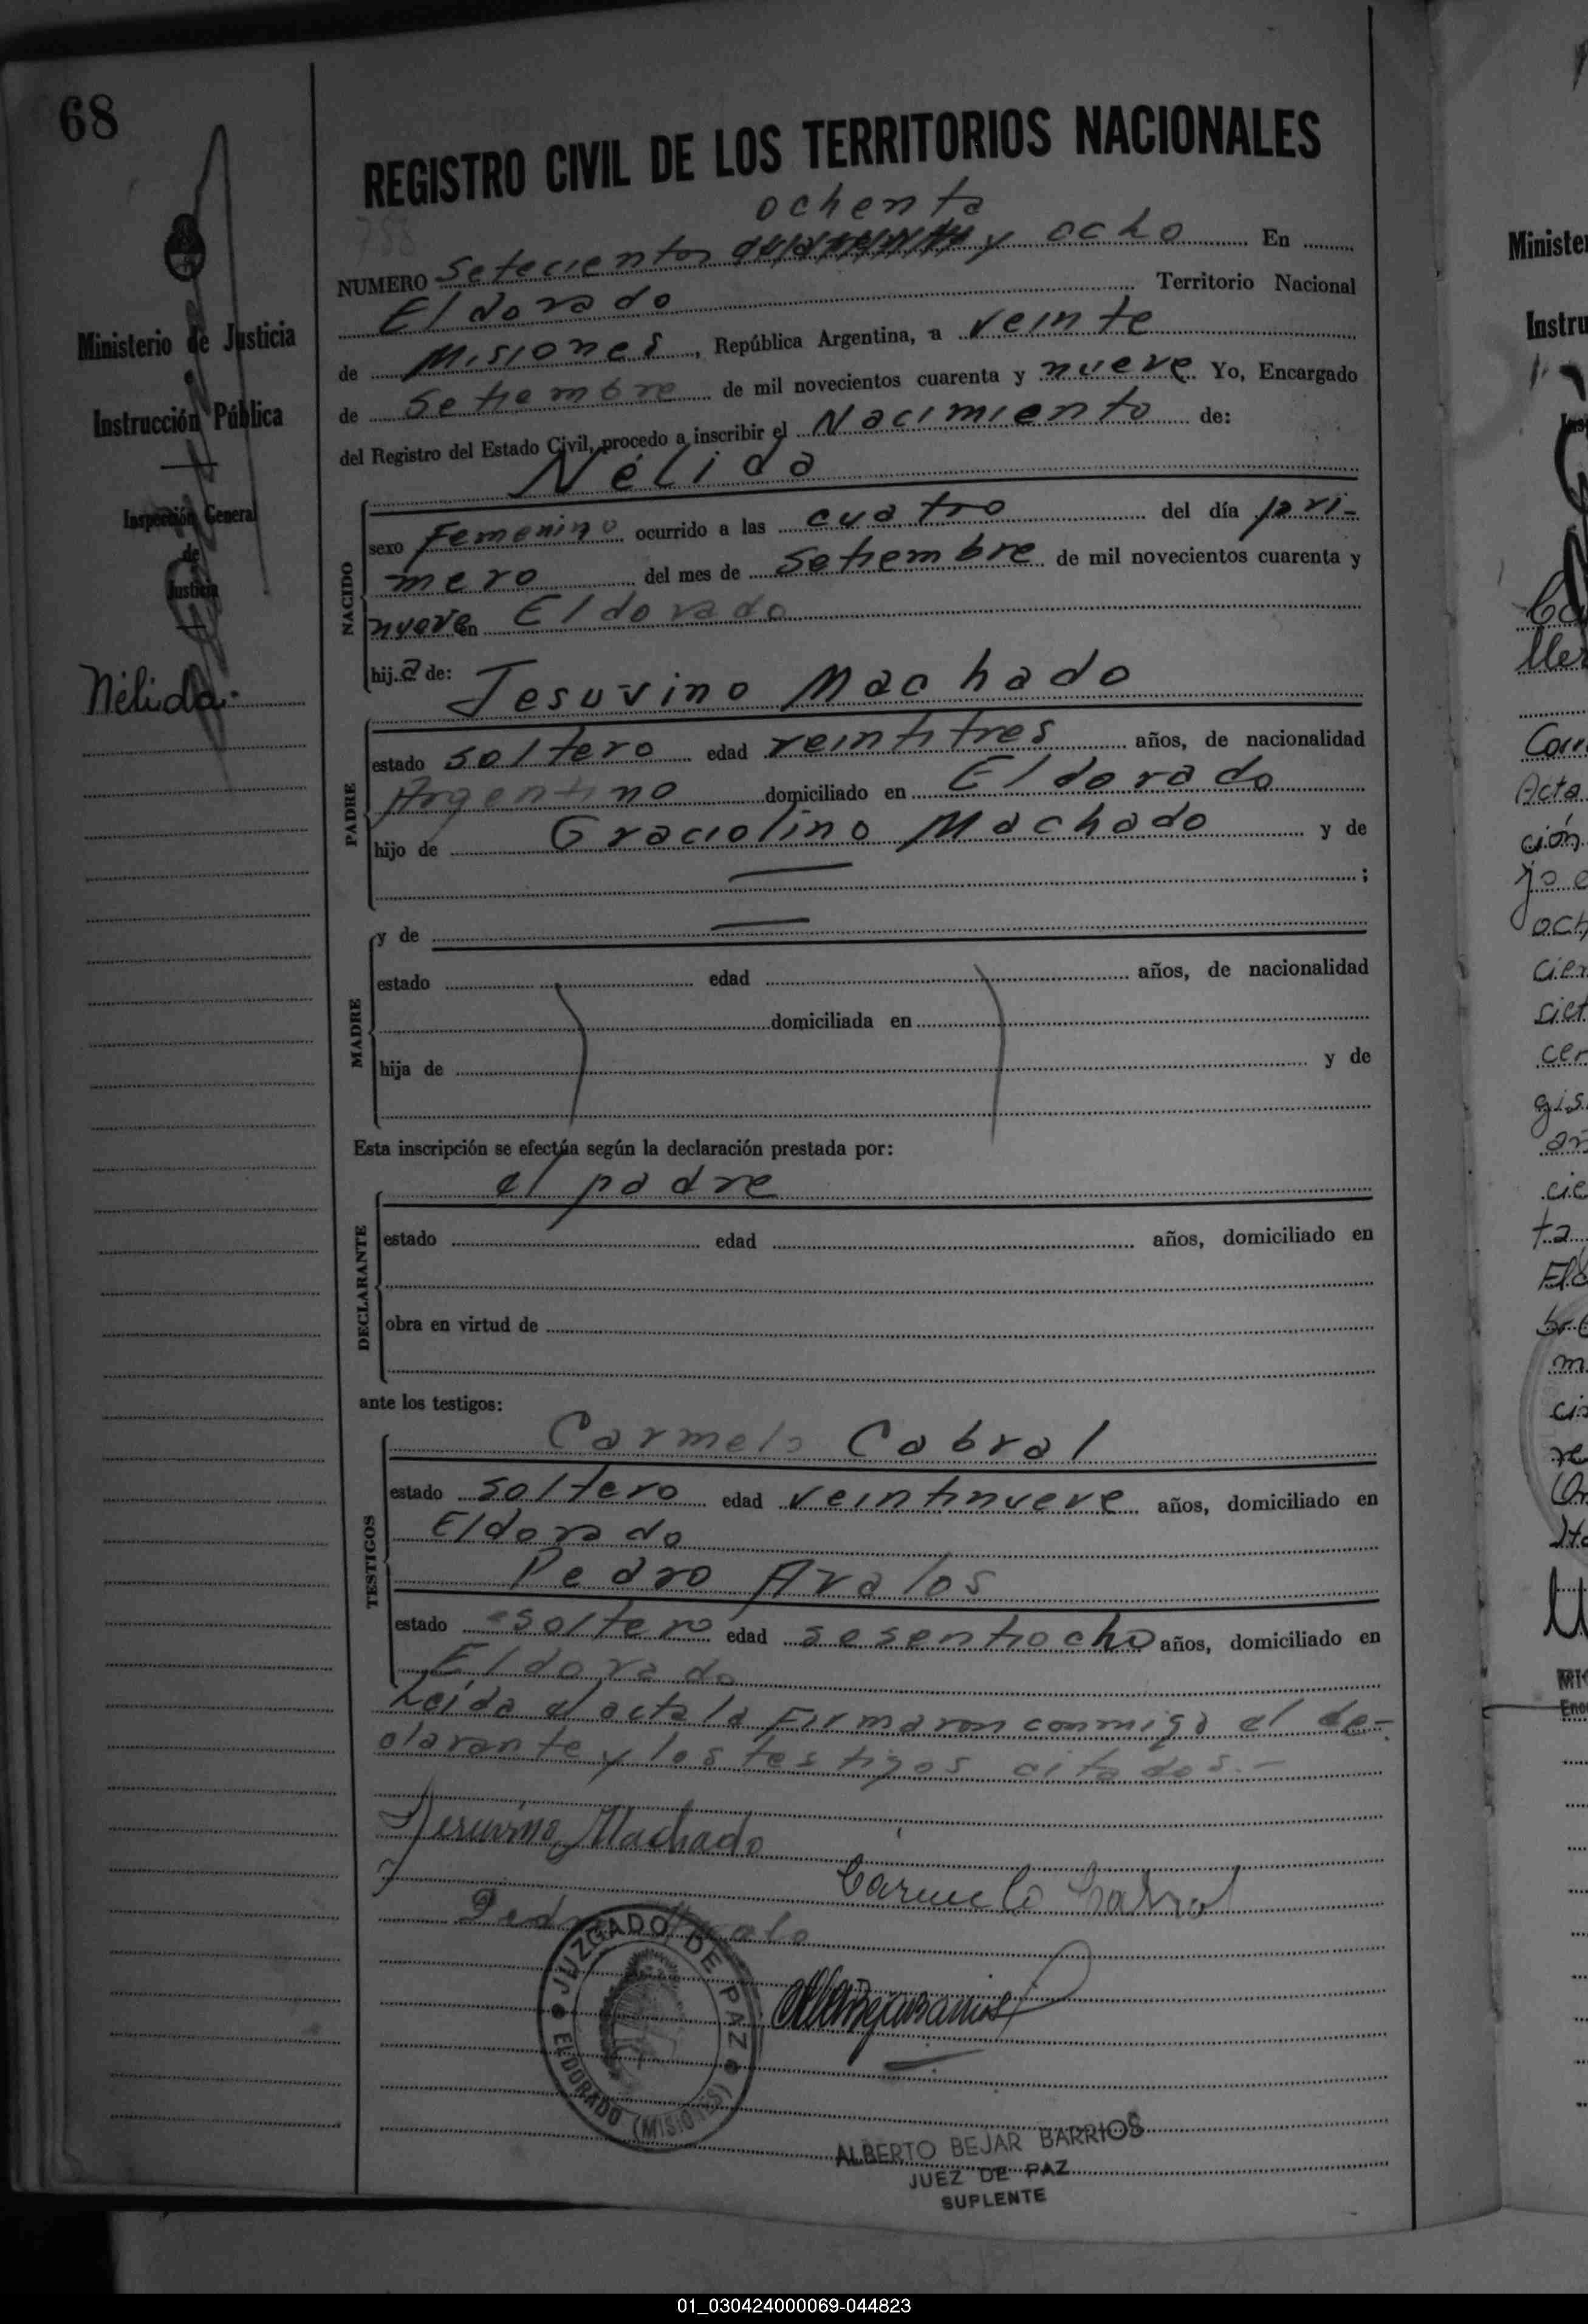 68
Ministerio de Justicia
Instrucción Pública
Inspección General
de
Justicia
Nélida.
REGISTRO CIVIL DE LOS TERRITORIOS NACIONALES
788
ochenta
NUMERO Setecientos y ocho En
Eldorado Territorio Nacional
de Misiones, República Argentina, a veinte
de Setiembre de mil novecientos cuarenta y nueve Yo, Encargado
del Registro del Estado Civil, procedo a inscribir el Nacimiento de:
Nélida
NACIDO
sexo Femenino ocurrido a las cuatro del día pri-
mero del mes de Setiembre de mil novecientos cuarenta y
nueve en Eldorado
hij.a de:
Jesuvino Machado
PADRE
estado soltero edad veintitres años, de nacionalidad
Argentino domiciliado en Eldorado
hijo de Graciolino Machado y de
— ;
MADRE
y de —
estado edad años, de nacionalidad
domiciliada en
hija de y de
Esta inscripción se efectúa según la declaración prestada por:
el padre
DECLARANTE
estado edad años, domiciliado en
obra en virtud de
ante los testigos:
TESTIGOS
Carmelo Cabral
estado soltero edad veintinueve años, domiciliado en
Eldorado
Pedro Avalos
estado soltero edad sesentiocho años, domiciliado en
Eldorado
Leida el acta la Firmaron conmigo el de-
clarante y los testigos citados.-
Jesuvino Machado
Carmelo Cabral
Pedro Avalo
JUZGADO DE PAZ
ELDORADO (MISIONES)
ALBERTO BEJAR BARRIOS
JUEZ DE PAZ
SUPLENTE
Ministe
Instru
01_030424000069-044823